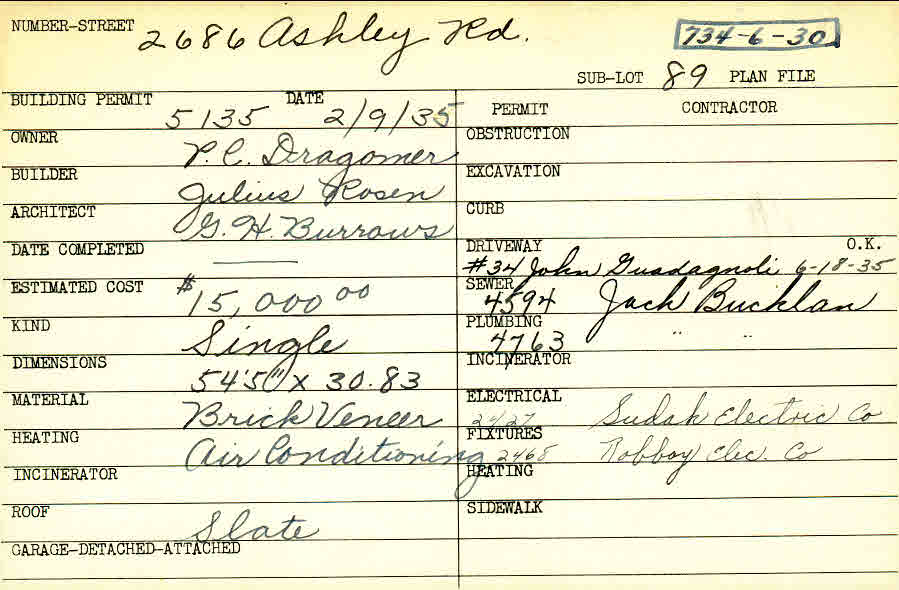 NUMBER-STREET 2686 Ashley Rd.
734-6-30
SUB-LOT 89 PLAN FILE
BUILDING PERMIT 5135 DATE 2/9/35
OWNER P. C. Dragomer
BUILDER Julius Rosen
ARCHITECT G. H. Burrows
DATE COMPLETED ———
ESTIMATED COST $15,000 00
KIND Single
DIMENSIONS 54'5" x 30.83
MATERIAL Brick Veneer
HEATING Air Conditioning
INCINERATOR
ROOF Slate
GARAGE-DETACHED-ATTACHED
PERMIT CONTRACTOR
OBSTRUCTION
EXCAVATION
CURB
DRIVEWAY O.K.
#34 John Guadagnoli 6-18-35
SEWER
4594 Jack Bucklan
PLUMBING
4763 " "
INCINERATOR
ELECTRICAL
2427 Sudak Electric Co
FIXTURES
2468 Robboy Elec. Co
HEATING
SIDEWALK